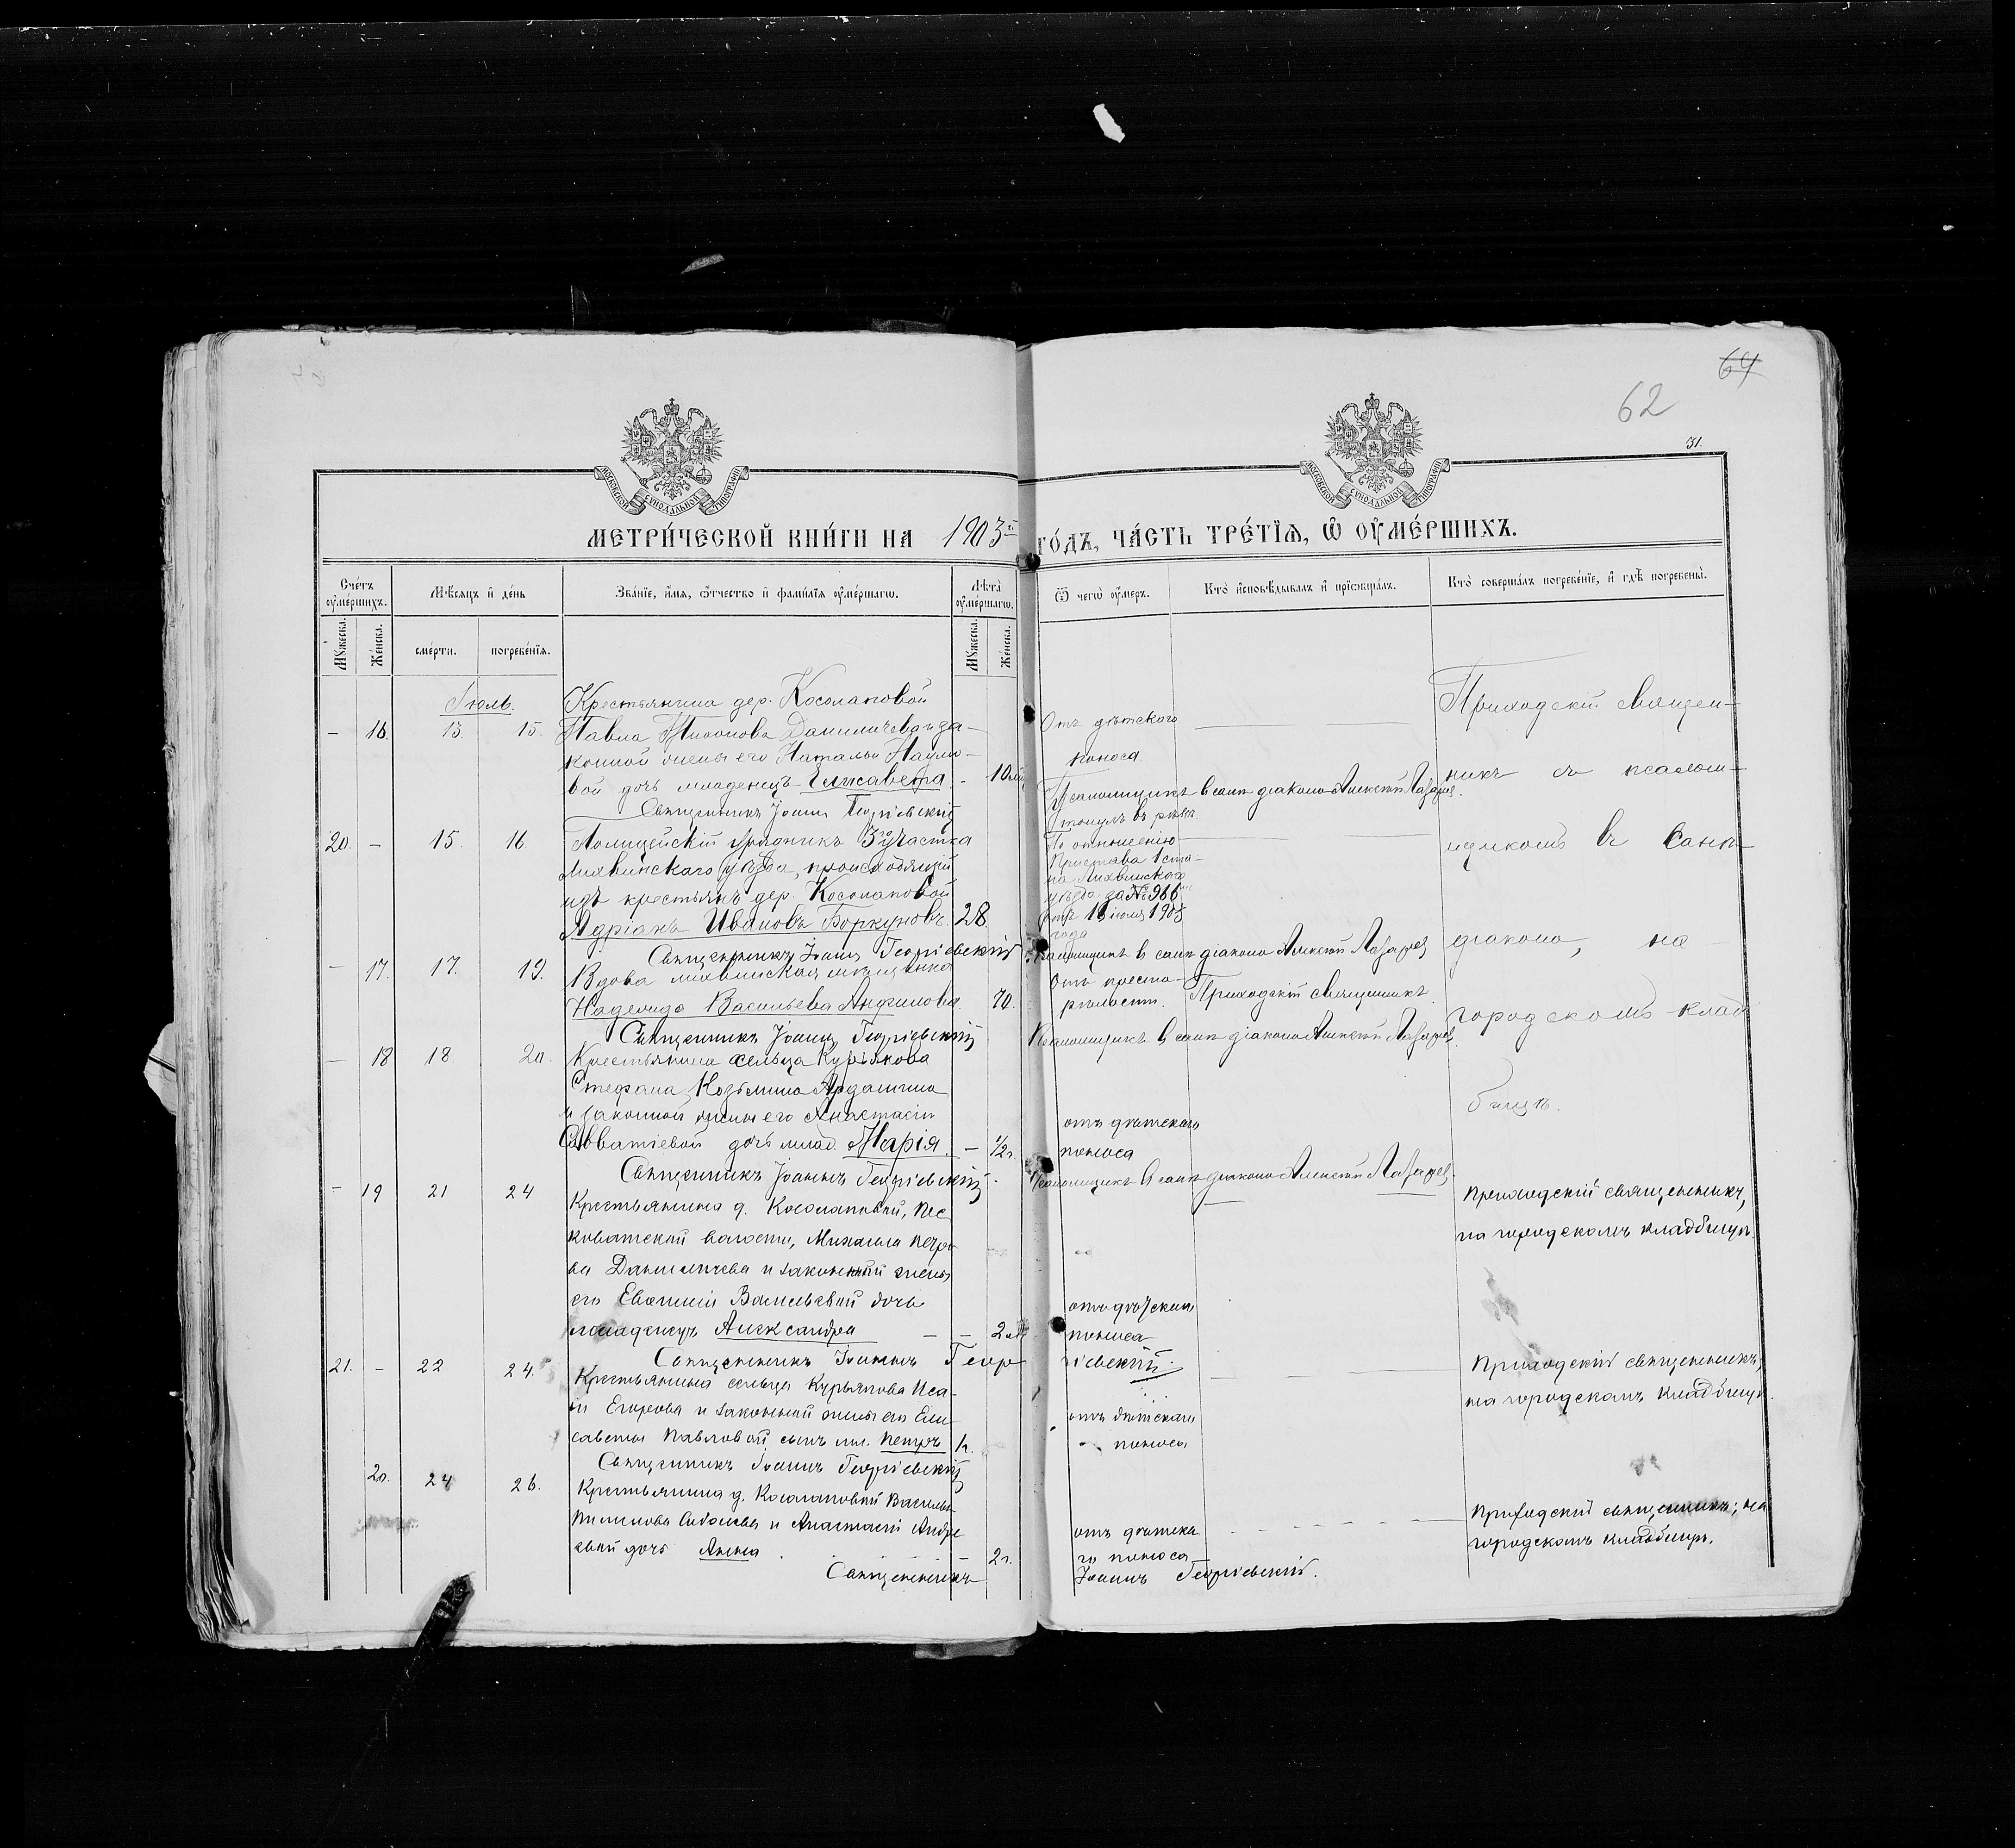 64
62
31.
МОСКОВСКОЙ СѴНОДАЛЬНОЙ ТИПОГРАФІИ
МОСКОВСКОЙ СѴНОДАЛЬНОЙ ТИПОГРАФІИ
МЕТРИ́ЧЕСКОЙ КНИ́ГИ НА 1903й ГО́ДЪ, ЧА́СТЬ ТРЕ́ТІѦ, Ѡ҆ ОУ҆МЕ́РШИХЪ.
Сче́тъ оу҆ме́ршихъ.
Мѣ́сяцъ и҆ де́нь
Зва́ніе, и҆́мя, ѻ҆́тчество и҆ фами́лія оу҆ме́ршагѡ.
Лѣта̀ оу҆ме́ршагѡ.
Ѿ чегѡ̀ оу҆́меръ.
Кто̀ и҆сповѣ́дывалъ и҆ прїѡбща́лъ.
Кто̀ соверша́лъ погребе́ніе, и҆ гдѣ̀ погребены̀.
Мꙋ́жеска.
Же́нска.
сме́рти.
погребе́нія.
Мꙋ́жеска.
Же́нска.
Іюль.
Крестьянина дер. Косолаповой
– 16. 13. 15. Павла Даниличева и за-
конной жены его Натальи Наумо-
вой дочь младенецъ Елисавета – 10
Отъ дѣтского
поноса
Священникъ Іоаннъ Георгіевскій
Псаломщикъ в санѣ діакона Алексѣй Лазарев.
Приходскій священ-
никъ съ псалом-
щикомъ въ санѣ
діакона, на
городскомъ клад
бищѣ.
20. – 15. 16. Полицейскій урядникъ 3го участка
Лихвинскаго уѣзда, происходящій
изъ крестьянъ дер. Косолаповой
Адріанъ Ивановъ Боркуновъ. 28.
Утонулъ въ рѣкѣ
По отношенію
Пристава 1 ста-
на Лихвинского
уѣзда за № 966
от 16 іюля 1903
года
Священникъ Іоаннъ Георгіевскій
Псаломщикъ в санѣ діакона Алексѣй Лазарев
– 17. 17. 19. Вдова лихвинская мѣщанка
Надежда Васильева Анфилова. 70.
Отъ преста-
рѣлости. Приходскій священникъ.
Священникъ Іоаннъ Георгіевскій
Псаломщикъ в санѣ діакона Алексѣй Лазарев.
– 18 18 20. Крестьянина сельца Курьякова
Стефана Козьмина Ардалина
и законной жены его Анастасіи
Савватіевой дочь млад. Марія. – 1/2 г.
отъ дѣтскаго
поноса
Священникъ Іоаннъ Георгіевскій.
Псаломщикъ в санѣ діакона Алексѣй Лазарев.
– 19 21 24
Крестьянина д. Косолаповой, Пес
коватской волости, Михаила Петро
ва Даниличева и законной жены
его Евгеніи Васильевой дочь
младенецъ Александра – – 2
отъ дѣтскаго
поноса
Приходскій священникъ,
на городскомъ кладбищѣ.
Священникъ Іоаннъ Георгіевскій.
21. – 22 24. Крестьянина сельца Курьякова Иса-
іи Егорова и законной жены его Ели
саветы Павловой сынъ мл. Петръ 1 г.
отъ дѣтскаго
поноса
Приходскій священникъ,
на городскомъ кладбищѣ.
Священникъ Іоаннъ Георгіевскій
20. 24 26. Крестьянина д. Косолаповой Василья
и Анастасіи Андре
евой дочь Анна – 2 г.
отъ дѣтска
го поноса
Приходскій священникъ, на
городскомъ кладбищѣ.
Священникъ Іоаннъ Георгіевскій.